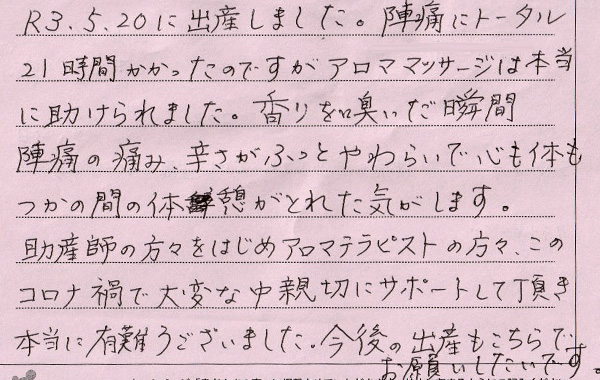 R3.5.20に出産しました。陣痛にトータル
21時間かかったのですがアロママッサージは本当
に助けられました。香りを嗅いだ瞬間
陣痛の痛み、辛さがふっとやわらいで心も体も
つかの間の休憩がとれた気がします。
助産師の方々をはじめアロマテラピストの方々、この
コロナ禍で大変な中親切にサポートして頂き
本当に有難うございました。今後の出産もこちらで
お願いしたいです。